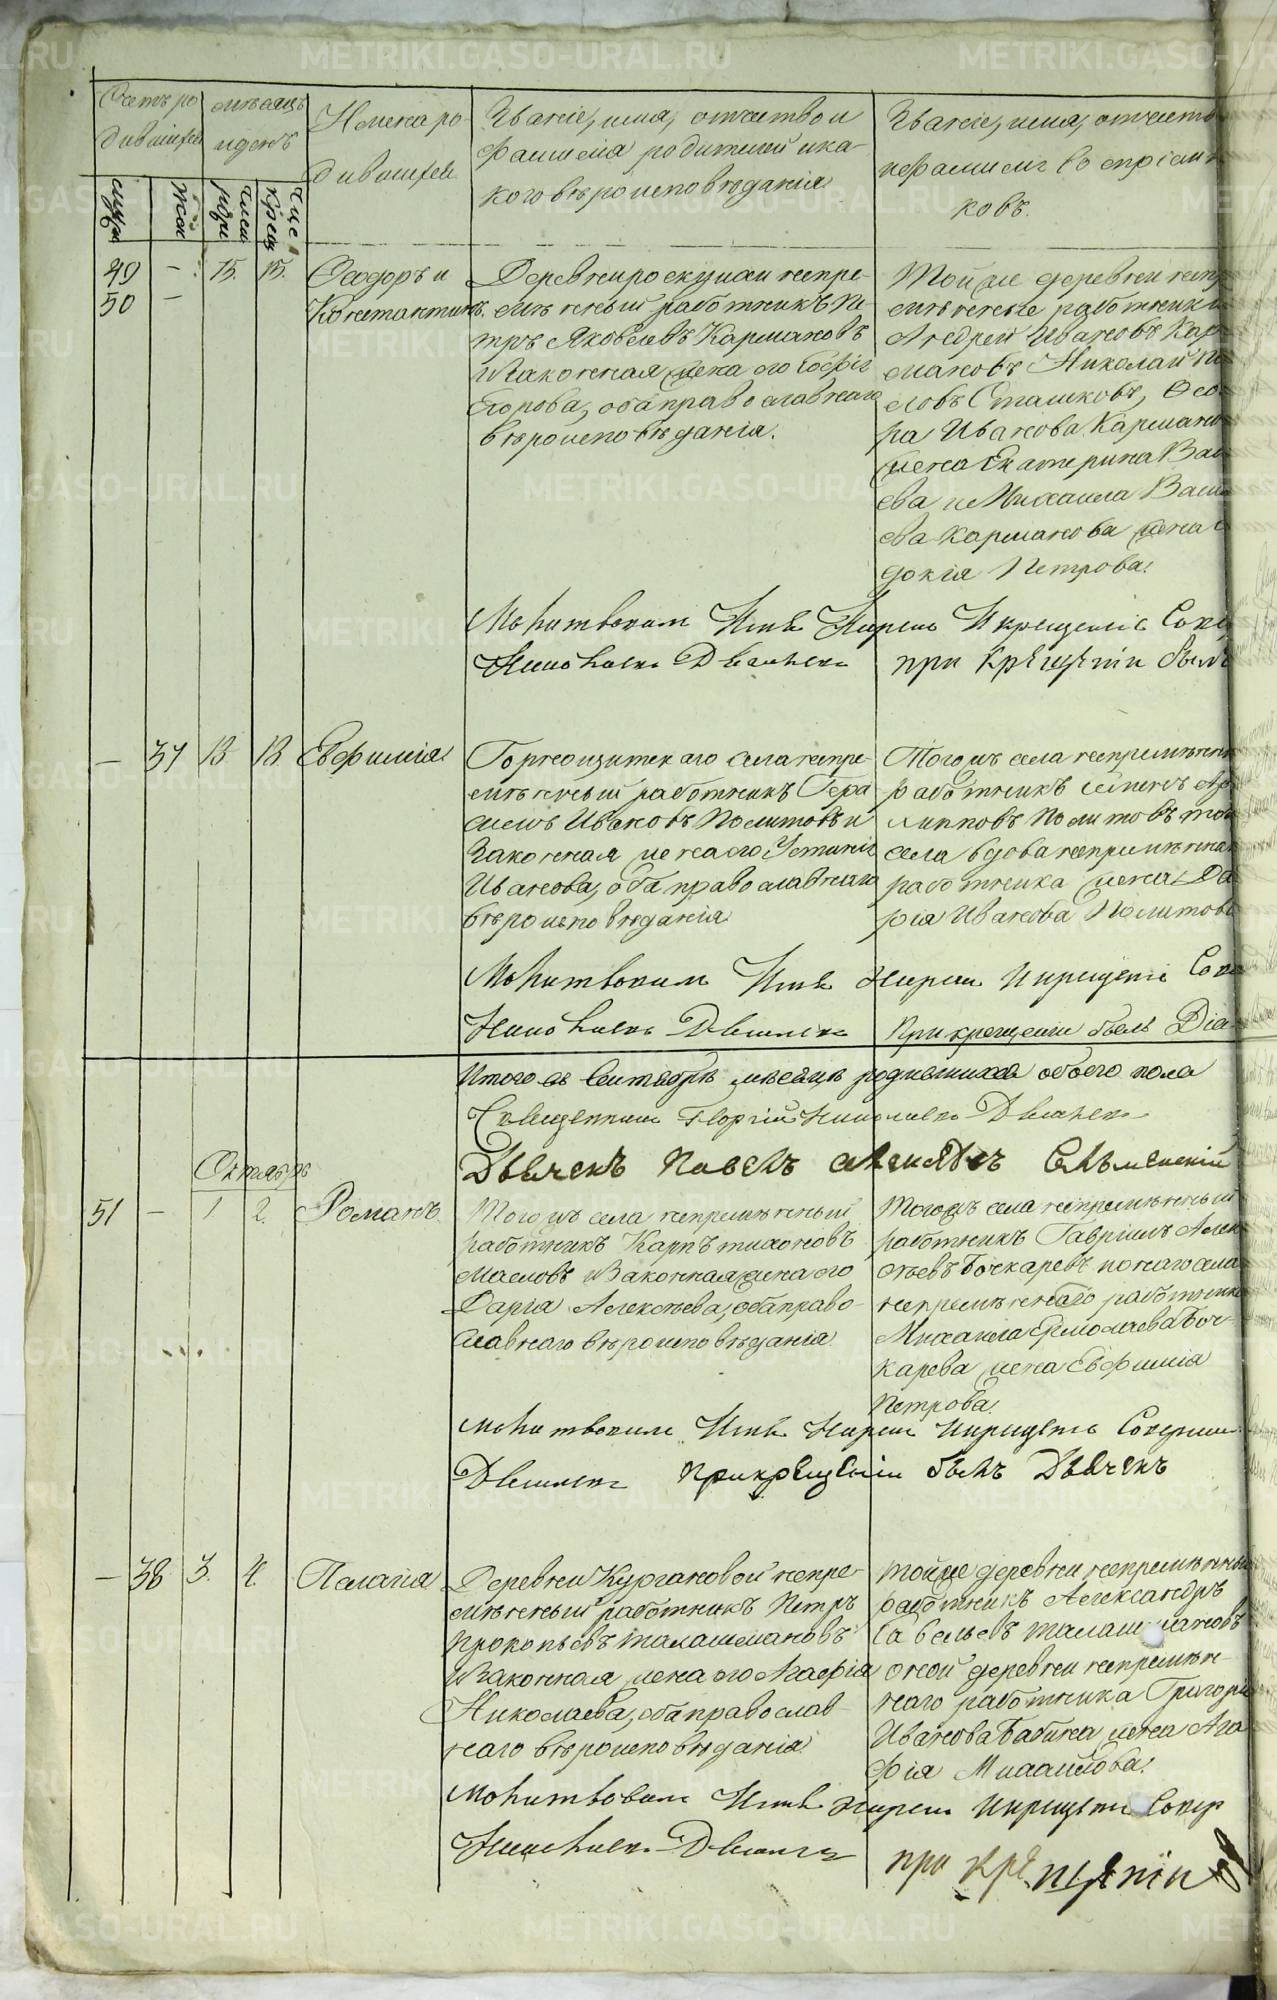 METRIKI.GASO-URAL.RU
Счетъ ро
дившихся
мѣсяцъ
и день
Имена ро-
дившихся
Званіе, имя, отчество и
фамилія родителей и ка-
кого вѣроисповѣданія
Званіе, имя, отчество
и фамилія воспріем
ковъ.
муж
жен
рожд
крещ
49 — 15. 15. Ѳеодоръ и
50 — Константинъ.
Деревни проскуиѣ непре-
мѣнный работникъ Пе-
тръ Яковлевъ Кармановъ
и законная жена его Софія
Егорова, оба православнаго
вѣроисповѣданія.
Той же деревни непре
мѣнные работники
Андрей Ивановъ Кар
мановъ Николай
ловъ Сташковъ, Ѳеодо
ра Иванова Карманов
жена Екатерина Ва
ева и Михаила Васи
ева Карманова жена
докія Петрова.
Молитвовалъ Имя Нарекъ И крещеніе Сове
Николаевъ
при Крещеніи былъ
— 37 13 13. Евфимія
Горнощитскаго села непре-
мѣнный работникъ Гера
симъ Ивановъ Политовъ и
законная жена его Устинія
Иванова, оба православнаго
вѣроисповѣданія
Того жъ села непремѣнный
работникъ Семенъ Ар
липповъ Политовъ того
села вдова непремѣннаго
работника жена Да
рія Иванова Политова
Молитвовалъ Имя Нарекъ И крещеніе Сове
Николаевъ
При крещеніи былъ Діа
Итого въ Сентябрѣ мѣсяцѣ родившихся обоего пола
Священникъ Георгій Николаевъ
Дьячекъ Павелъ
Октябрь
51 — 1 2. Романъ.
Того жъ села непремѣнный
работникъ Карпъ тихоновъ
Масловъ и законная жена его
Дарія Алексѣева, оба право-
славнаго вѣроисповѣданія
Того жъ села непремѣнный
работникъ Гавріилъ Алек
сѣевъ Бочкаревъ и онаго села
непремѣннаго работника
Михаила Ермолаева Боч-
карева жена Евфимія
Петрова.
Молитвовалъ Имя Нарекъ И крещеніе Соверши
при крещеніи былъ Дьячекъ
— 38 3. 4. Пелагія
Деревни Кургановой непре-
мѣнный работникъ Петръ
Прокопьевъ талашмановъ
и законная жена его Агафія
Николаева, оба православ-
наго вѣроисповѣданія
Той же деревни непремѣнный
работникъ Александръ
Савельевъ талашмановъ
оной деревни непремѣн-
наго работника Григорія
Иванова Бабина жена Ага
фія Михайлова.
Молитвовалъ Имя Нарекъ И крещеніе Совер
Николаевъ
при крещеніи